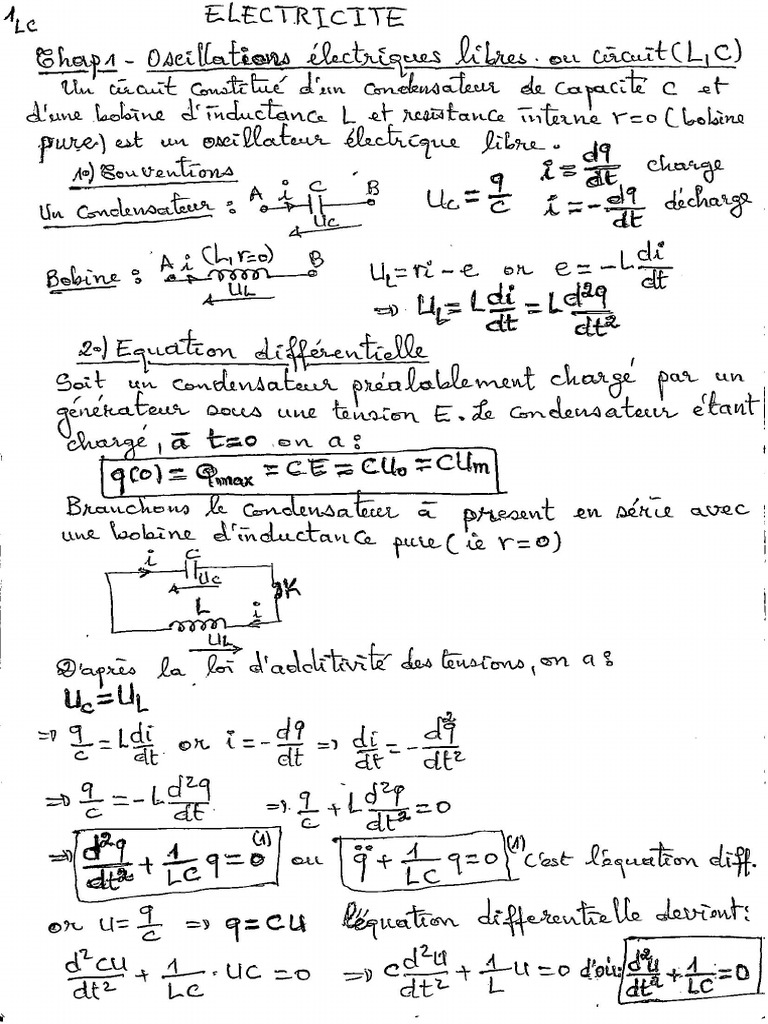 1LC ELECTRICITE
Chap1 - Oscillations électriques libres ou circuit (L,C)
Un circuit constitué d'un condensateur de capacité C et
d'une bobine d'inductance L et resistance interne r=0 (bobine
pure) est un oscillateur électrique libre.
1°) Conventions
Un Condensateur : A i C B Uc Uc = q/c i = dq/dt charge
i = -dq/dt décharge
Bobine : A i (L, r=0) B UL UL = ri - e or e = -L di/dt
⇒ UL = L di/dt = L d²q/dt²
2°) Equation différentielle
Soit un condensateur préalablement chargé par un
générateur sous une tension E. Le condensateur étant
chargé, à t=0 on a :
q(0) = Qmax = CE = CU₀ = CUm
Branchons le condensateur à présent en série avec
une bobine d'inductance pure (ie r=0)
i C
Uc K
L i
UL
D'après la loi d'additivité des tensions, on a :
Uc = UL
⇒ q/c = L di/dt or i = -dq/dt ⇒ di/dt = -d²q/dt²
⇒ q/c = -L d²q/dt ⇒ q/c + L d²q/dt² = 0
⇒ d²q/dt² + 1/LC q = 0 (1) ou q̈ + 1/LC q = 0 (1) c'est l'équation diff.
or u = q/c ⇒ q = CU l'équation differentielle devient :
d²CU/dt² + 1/LC · UC = 0 ⇒ C d²U/dt² + 1/L U = 0 d'où : d²U/dt² + 1/LC = 0